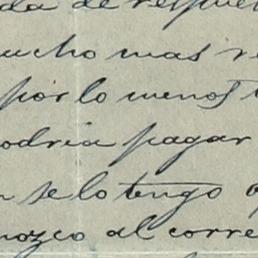 da de respue
ucho mas re
por lo menos
odria pagar
n se lo tengo
nozco al corre